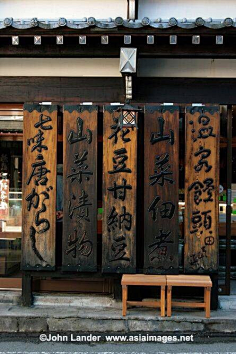 温泉饅頭
山菜佃煮
花豆甘納豆
山菜漬物
七味唐がらし
©John Lander www.asiaimages.net